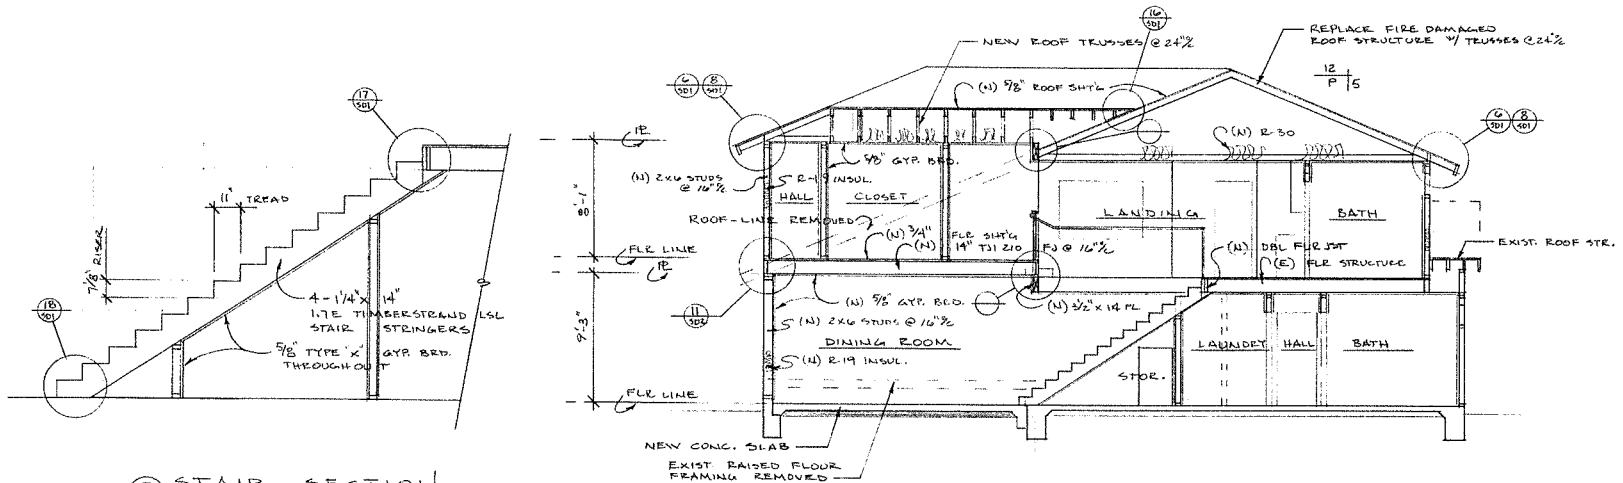 17
SD1
11" TREAD
7 1/8" RISER
18
SD1
4 - 1 1/4" x 14"
1.7E TIMBERSTRAND LSL
STAIR STRINGERS
5/8" TYPE 'X' GYP. BRD.
THROUGHOUT
STAIR SECTION
16
SD1
NEW ROOF TRUSSES @ 24" o/c
REPLACE FIRE DAMAGED
ROOF STRUCTURE W/ TRUSSES @ 24" o/c
12
P 5
6
SD1
8
SD1
(N) 5/8" ROOF SHT'G
6
SD1
8
SD1
PL
(N) R-30
5/8" GYP. BRD.
(N) 2x6 STUDS
@ 16" o/c
R-19 INSUL.
HALL
CLOSET
8'-1"
LANDING
BATH
ROOF-LINE REMOVED
(N) 3/4" FLR SHT'G
(N) 14" TJI 210 FJ @ 16" o/c
FLR LINE
PL
(N) DBL FLR JST
(E) FLR STRUCTURE
EXIST. ROOF STR.
11
SD2
(N) 5/8" GYP. BRD.
(N) 3 1/2" x 14 PL
(N) 2x6 STUDS @ 16" o/c
9'-3"
DINING ROOM
LAUNDRY
HALL
BATH
(N) R-19 INSUL.
STOR.
FLR LINE
NEW CONC. SLAB
EXIST RAISED FLOUR
FRAMING REMOVED